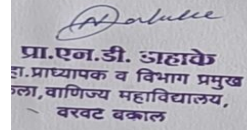 प्रा.एन.डी. डाहाके
हा.प्राध्यापक व विभाग प्रमुख
ला,वाणिज्य महाविद्यालय,
वरवट बकाल